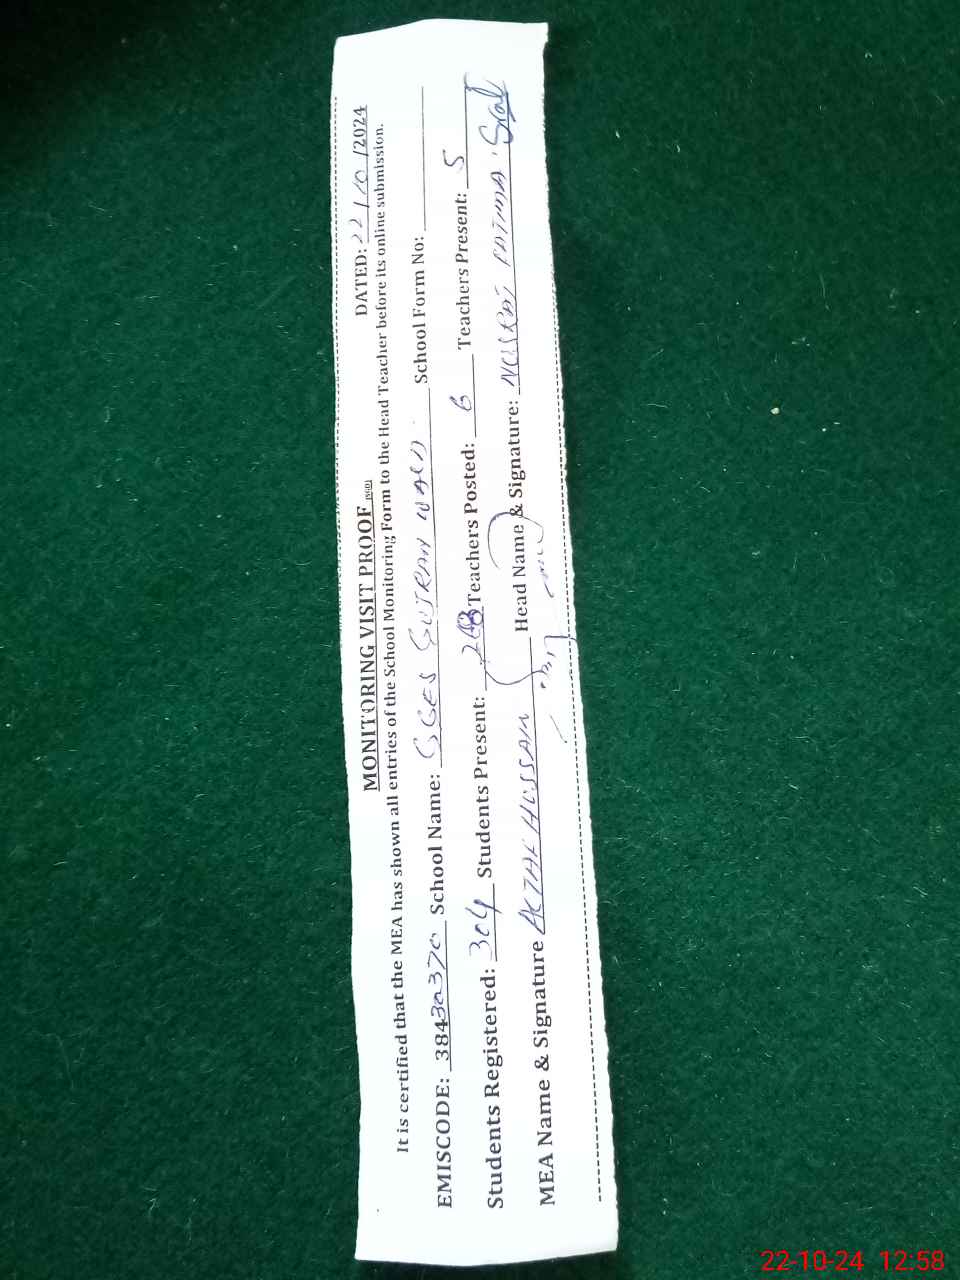 MONITORING VISIT PROOF DATED: 22/10/2024
It is certified that the MEA has shown all entries of the School Monitoring Form to the Head Teacher before its online submission.
EMISCODE: 38430370 School Name: GGES GUJRAN WALI School Form No:
Students Registered: 304 Students Present: Teachers Posted: 6 Teachers Present: 5
MEA Name & Signature ALTAF HUSSAIN Head Name & Signature: NUSRAT FATIMA
22-10-24 12:58